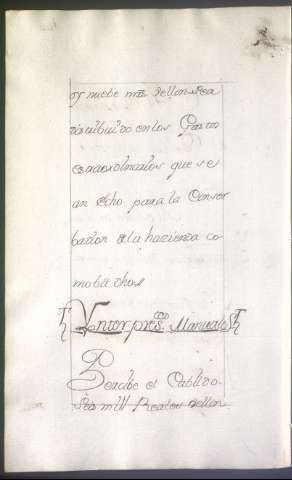 y nuebe mrs. vellon se a
distribuido en los Gastos
extraordinarios que se
an echo para la Conser
bacion de la hazienda co
mo ba dho
Ynterpres. Manuales
Percibe el Cavildo
Seis mill Reales vellon